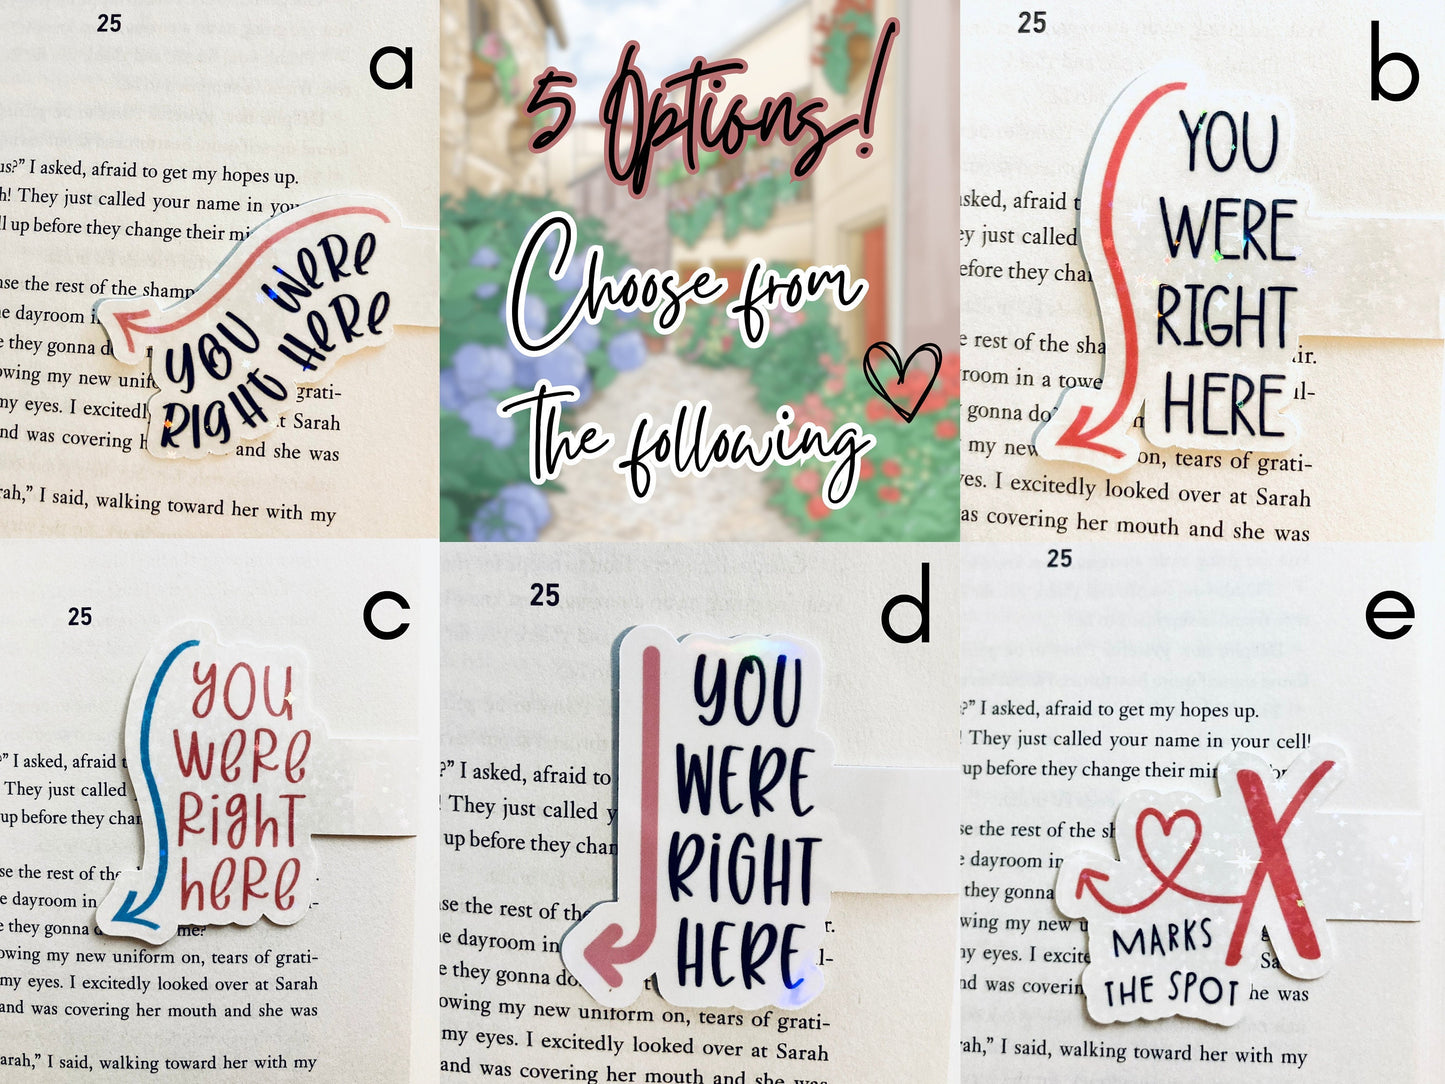 25
a
us?” I asked, afraid to get my hopes up.
h! They just called your name in you
ll up before they change their mi
nse the rest of the shamp
e dayroom i
e they gonna d
owing my new unif
grati-
my eyes. I excitedl
t Sarah
nd was covering h
and she was
rah,” I said, walking toward her with my
YOU WERE
RIGHT HERE
5 Options!
Choose from
The following
25
b
asked, afraid t
ey just called
efore they cha
e rest of the sha
ir.
room in a towe
ll-
gonna do
my new
on, tears of grati-
yes. I excitedly looked over at Sarah
as covering her mouth and she was
YOU
WERE
RIGHT
HERE
25
c
?” I asked, afraid t
They just called
up before they cha
se the rest of the
e dayroom in
e they gonna d
me?
owing my new uniform on, tears of grati-
my eyes. I excitedly looked over at Sarah
and was covering her mouth and she was
arah,” I said, walking toward her with my
you
were
right
here
25
d
?” I asked, afraid to
! They just called y
up before they chan
se the rest of the
r.
e dayroom in
ll-
e they gonna do
t
owing my new uniform on, tears of grati-
my eyes. I excitedly looked over at Sarah
and was covering her mouth and she was
YOU
WERE
RIGHT
HERE
25
e
?” I asked, afraid to get my hopes up.
! They just called your name in your cell!
up before they change their min
for
se the rest of the sh
e dayroom in
they gonna
wing my new u
g
ny eyes. I excite
Sa
nd was coverin
he was
rah,” I said, walking toward her with my
X
MARKS
THE SPOT